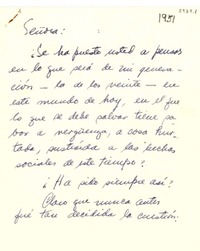 1951
Señora:
¿Se ha puesto usted a pensar
en lo que será de mi genera-
ción — la de los veinte — en
este mundo de hoy, en el que
lo que se debe salvar tiene sa-
bor a vergüenza, a cosa hur-
tada, sustraída a las luchas
sociales de este tiempo?
¿Ha sido siempre así?
Claro que nunca antes
fué tan decidida la cuestión.